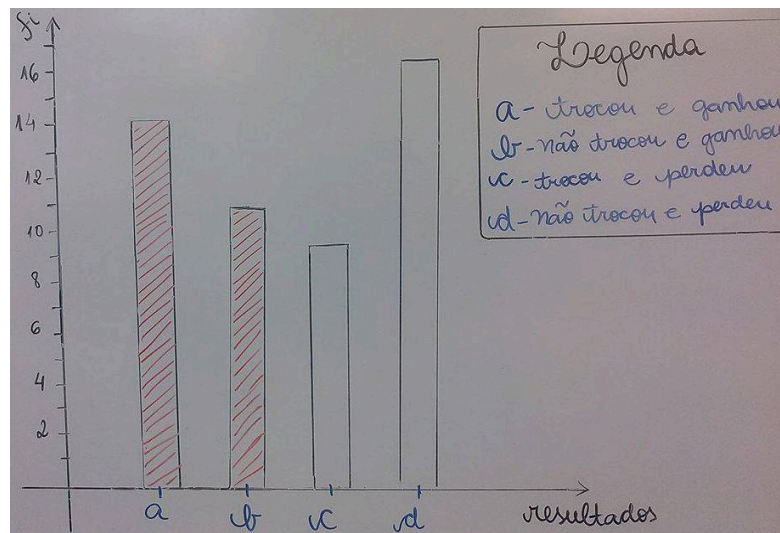 fi
16
14
12
10
8
6
4
2
a b c d
resultados
Legenda
a - trocou e ganhou
b - não trocou e ganhou
c - trocou e perdeu
d - não trocou e perdeu